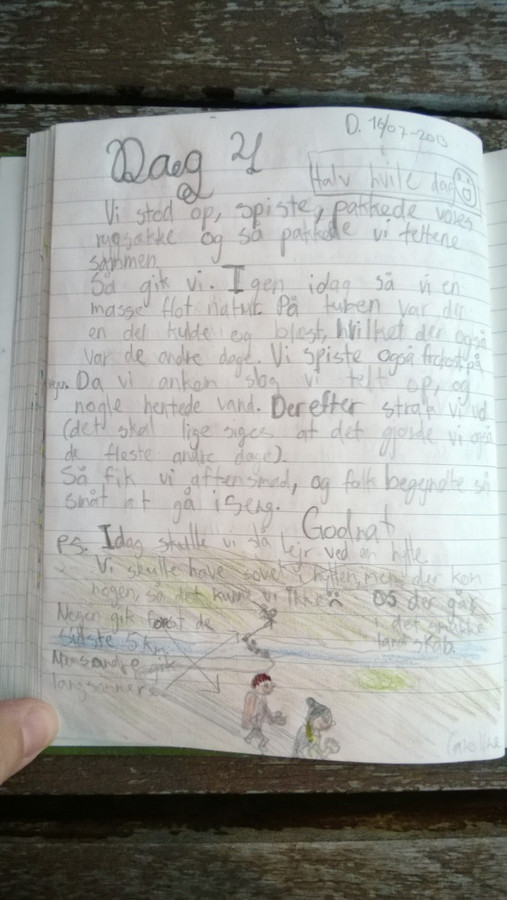 D. 16/07-2013
Dag 4
Halv hvile dag
Vi stod op, spiste, pakkede vores
rygsække og så pakkede vi teltene
sammen.
Så gik vi. Igen idag så vi en
masse flot natur. På turen var der
en del kulde og blæst, hvilket der også
var de andre dage. Vi spiste også frokost på
Da vi ankom slog vi telt op, og
nogle hentede vand. Derefter strak vi ud
(det skal lige siges at det gjorde vi også
de fleste andre dage).
Så fik vi aftensmad, og folk begyndte så
småt at gå i seng.
Godnat
PS. Idag skulle vi slå lejr ved en hytte.
Vi skulle have sovet i hytten, men der kom
nogen, så det kunne vi ikke
Nogen gik først de
sidste 5 km.
Mens andre gik
langsommere
OS der går
i det smukke
landskab.
Caroline